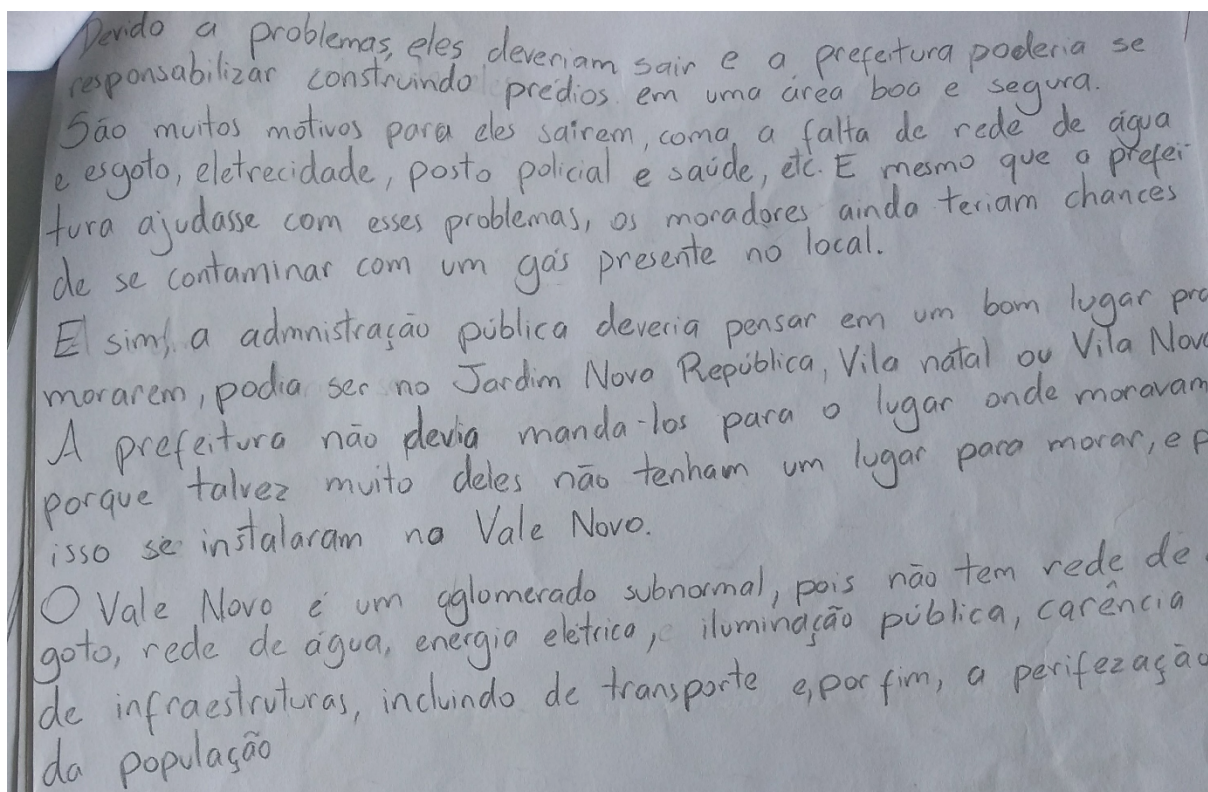 Devido a problemas, eles deveriam sair e a prefeitura poderia se
responsabilizar construindo prédios em uma área boa e segura.
São muitos motivos para eles sairem, coma a falta de rede de água
e esgoto, eletrecidade, posto policial e saúde, etc. E mesmo que a prefei
tura ajudasse com esses problemas, os moradores ainda teriam chances
de se contaminar com um gás presente no local.
E sim, a admnistração pública deveria pensar em um bom lugar pra
morarem, podia ser no Jardim Nova República, Vila natal ou Vila Nova
A prefeitura não devia manda-los para o lugar onde moravam
porque talvez muito deles não tenham um lugar para morar, e p
isso se instalaram na Vale Novo.
O Vale Novo é um aglomerado subnormal, pois não tem rede de
goto, rede de água, energia elétrica, iluminação pública, carência
de infraestruturas, incluindo de transporte e, por fim, a perifezação
da população